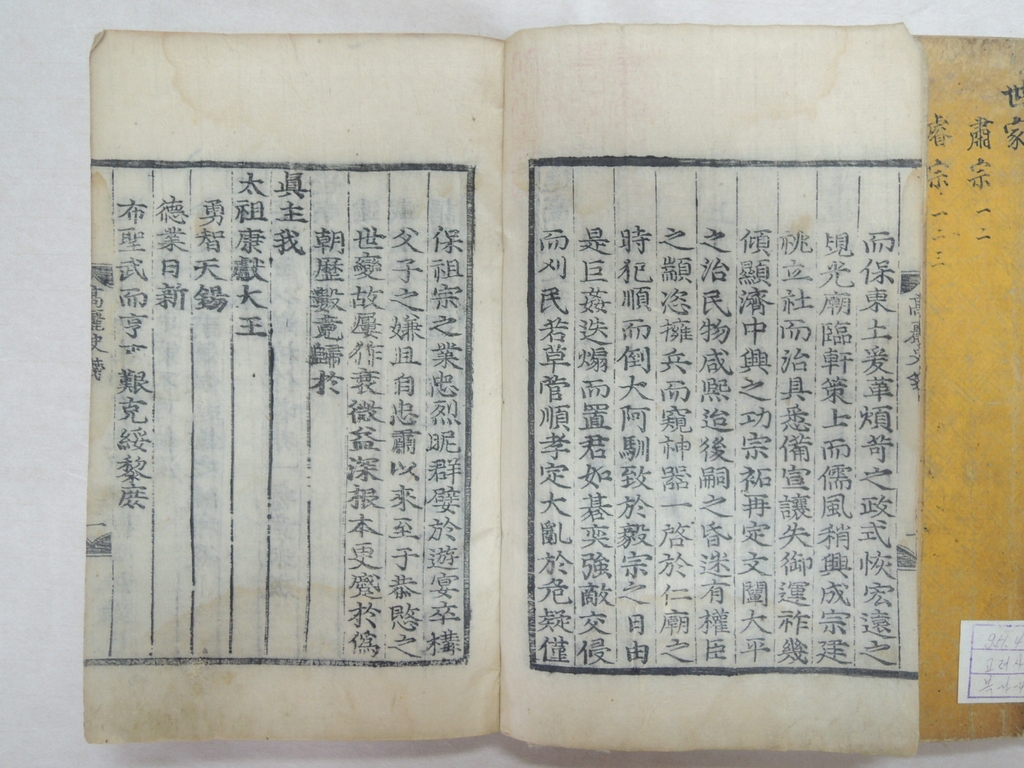 世家
肅宗 一 二
睿宗 一 二 三
高麗史箋
而保東土爰革煩苛之政式恢宏遠之
規光廟臨軒策士而儒風稍興成宗建
祧立社而治具悉備宣讓失御運祚幾
傾顯濟中興之功宗祏再定文闡大平
之治民物咸熙迨後嗣之昏迷有權臣
之顓恣擁兵而窺神器一啓於仁廟之
時犯順而倒大阿馴致於毅宗之日由
是巨姦迭煽而置君如碁奕強敵交侵
而刈民若草菅順孝定大亂於危疑僅
保祖宗之業忠烈昵群嬖於遊宴卒構
父子之嫌且自忠肅以來至于恭愍之
世變故屢作衰微益深根本更蹙於僞
朝歷數竟歸於
眞主我
太祖康獻大王
勇智天錫
德業日新
布聖武而亨屯艱克綏黎庶
高麗史箋 一